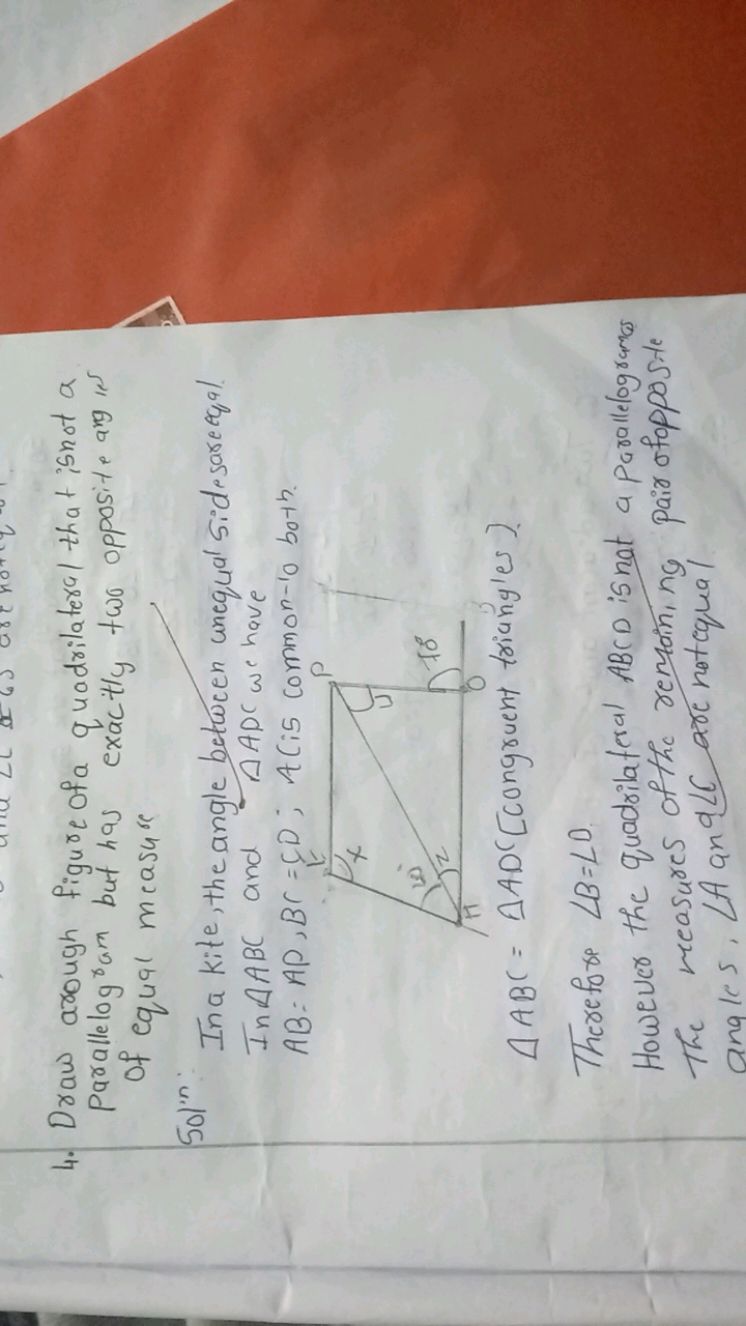 4. Draw a rough figure of a quadrilateral that is not a
parallelogram but has exactly two opposite angles
of equal measure
Sol'n:
In a kite, the angle between unequal sides are eqal.
In ΔABC and ΔADC we have
AB = AD, BC = CD; AC is common to both.
P
x
y
z
A
O
ΔABC = ΔADC [congruent triangles]
Therefore ∠B=∠D.
However the quadrilateral ABCD is not a parallelogramas
The measures of the remaining pair of opposite
angles, ∠A and ∠C are not equal